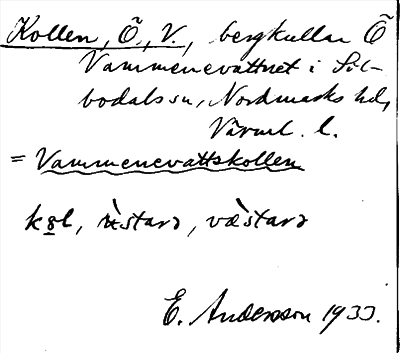 Kollen, Ö., V., bergkullar Ö
Vammenevattnet i Sil-
bodals sn, Nordmarks hd,
Värml. l.
= Vammenevattskollen
E. Andersson 1933.